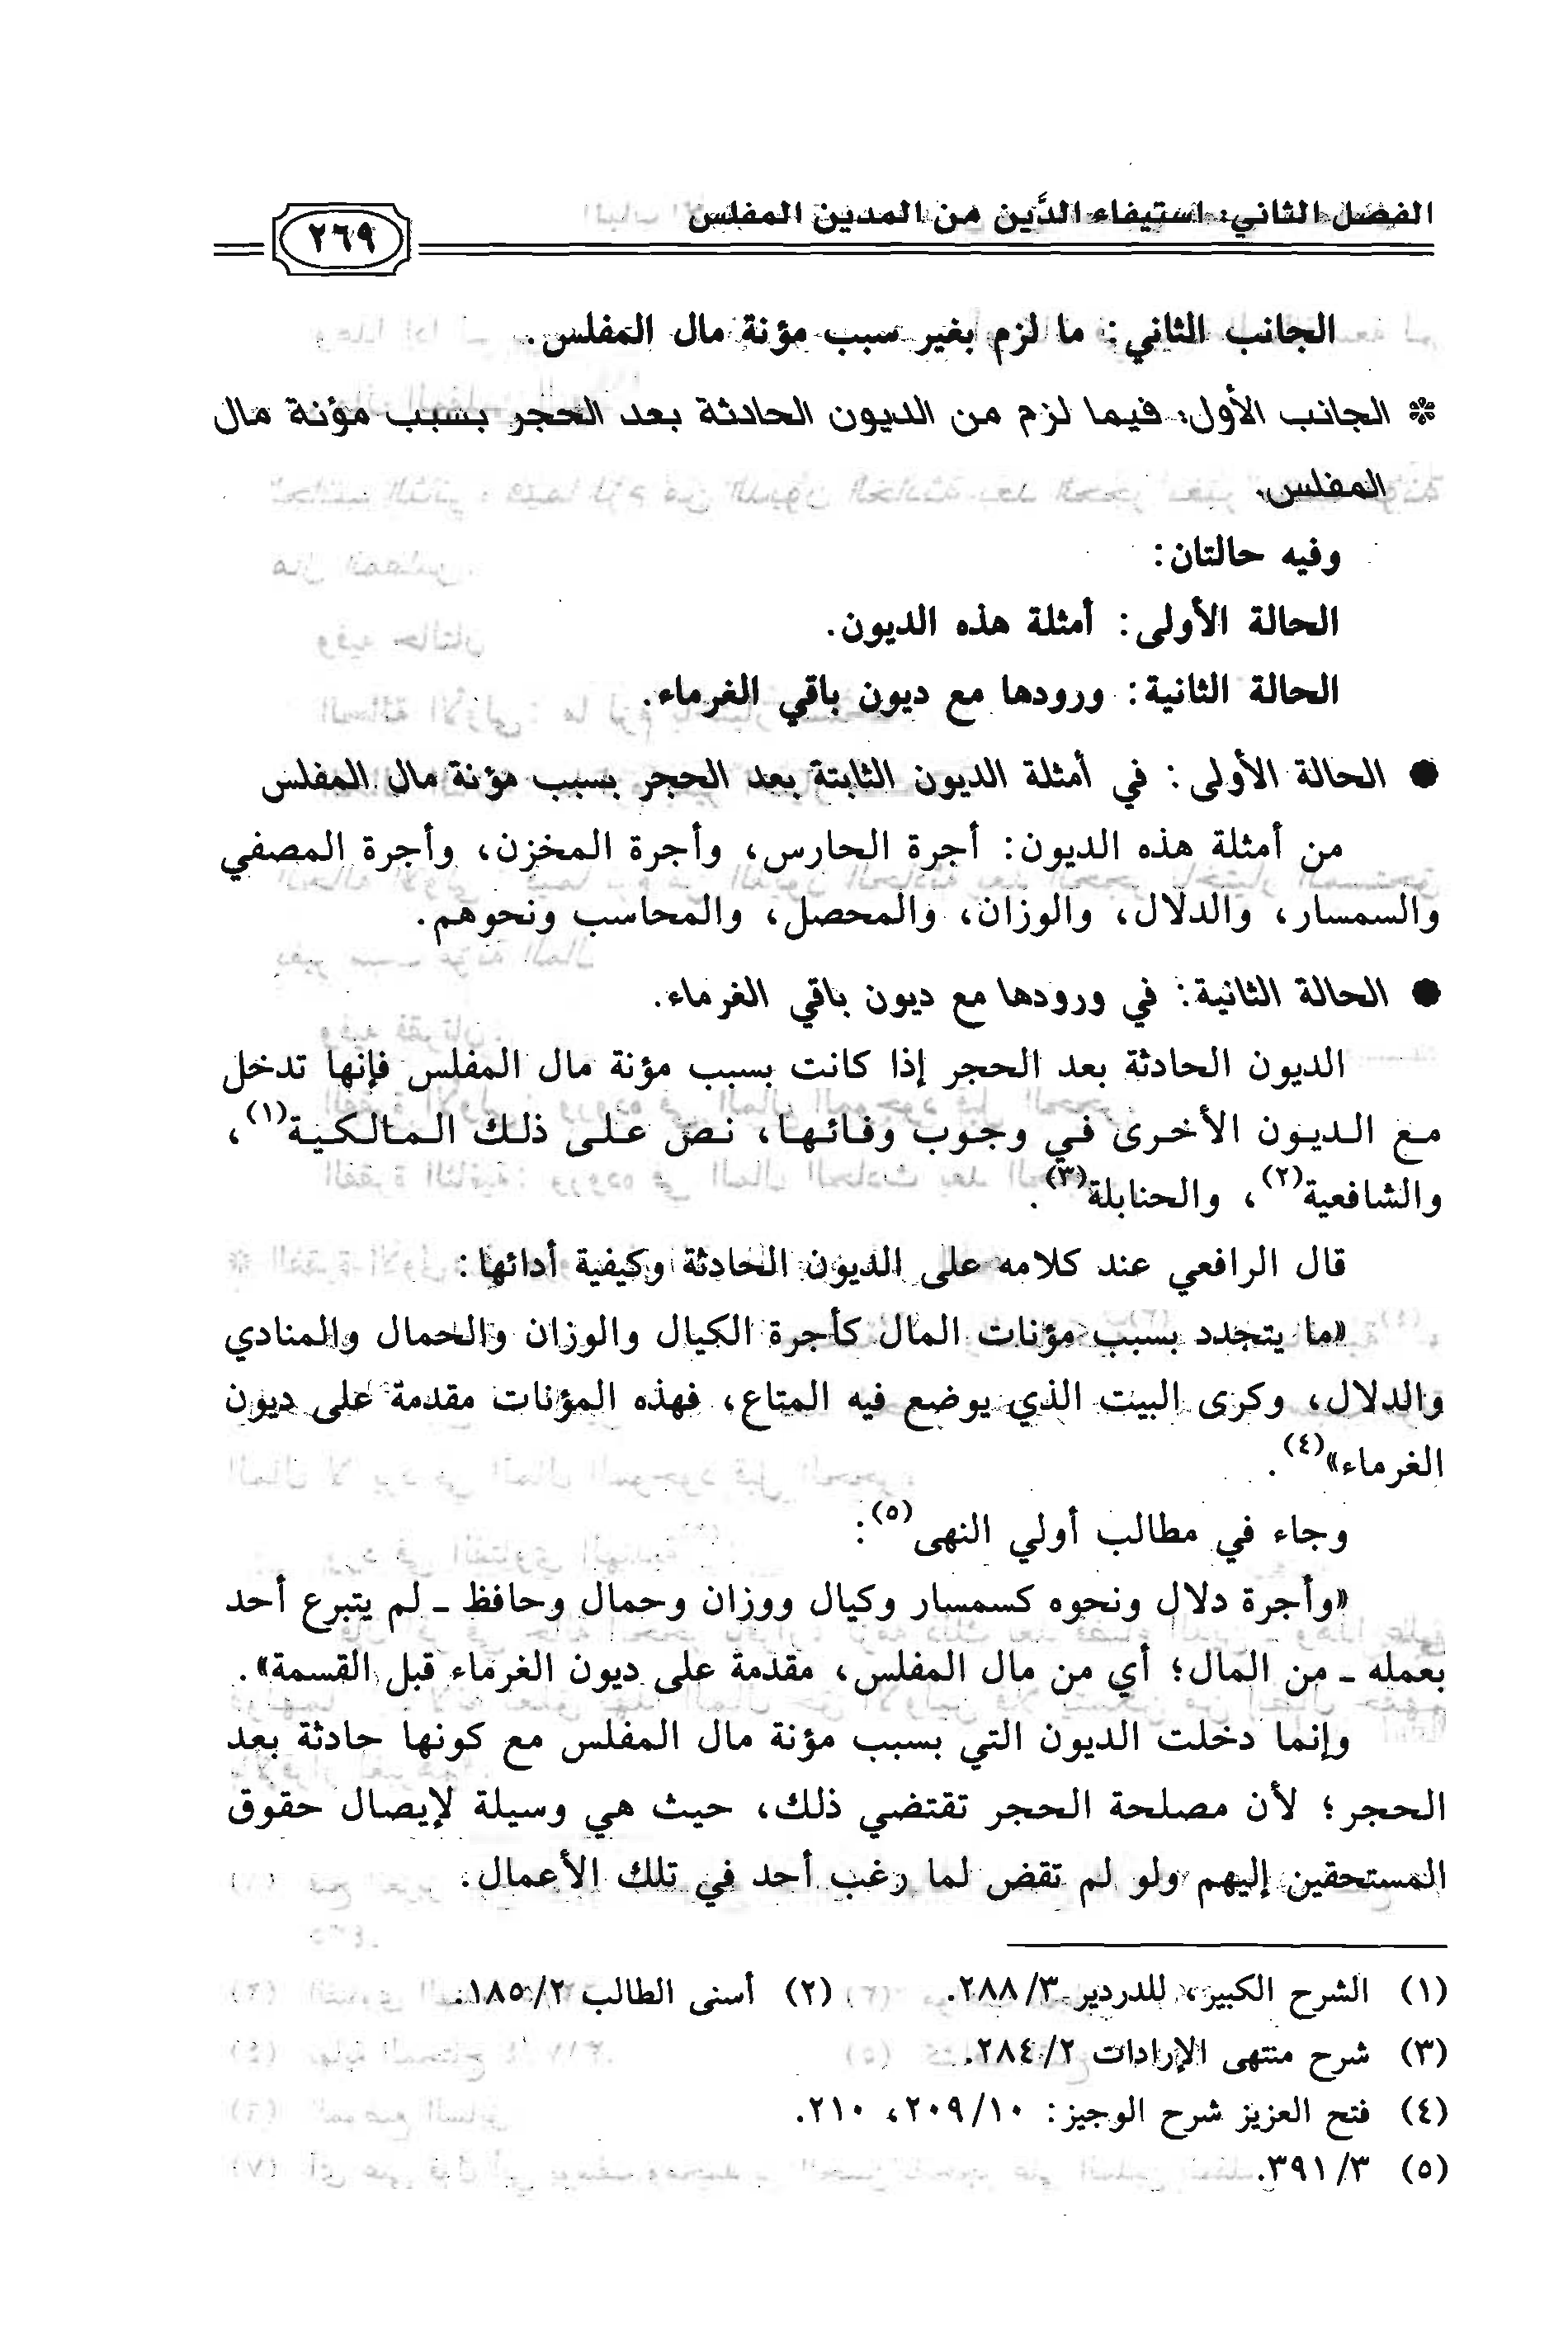 الفصل الثاني: استيفاء الدَّين من المدين المفلس
٢٦٩
الجانب الثاني: ما لزم بغير سبب مؤنة مال المفلس.
* الجانب الأول: فيما لزم من الديون الحادثة بعد الحجر بسبب مؤنة مال
المفلس.
وفيه حالتان:
الحالة الأولى: أمثلة هذه الديون.
الحالة الثانية: ورودها مع ديون باقي الغرماء.
● الحالة الأولى: في أمثلة الديون الثابتة بعد الحجر بسبب مؤنة مال المفلس
من أمثلة هذه الديون: أجرة الحارس، وأجرة المخزن، وأجرة المصفي
والسمسار، والدلال، والوزان، والمحصل، والمحاسب ونحوهم.
● الحالة الثانية: في ورودها مع ديون باقي الغرماء.
الديون الحادثة بعد الحجر إذا كانت بسبب مؤنة مال المفلس فإنها تدخل
مع الديون الأخرى في وجوب وفائها، نص على ذلك المالكية(١)،
والشافعية(٢)، والحنابلة(٣).
قال الرافعي عند كلامه على الديون الحادثة وكيفية أدائها:
«ما يتجدد بسبب مؤنات المال كأجرة الكيال والوزان والحمال والمنادي
والدلال، وكرى البيت الذي يوضع فيه المتاع، فهذه المؤنات مقدمة على ديون
الغرماء»(٤).
وجاء في مطالب أولي النهى(٥):
«وأجرة دلال ونحوه كسمسار وكيال ووزان وحمال وحافظ ـ لم يتبرع أحد
بعمله ـ من المال؛ أي من مال المفلس، مقدمة على ديون الغرماء قبل القسمة».
وإنما دخلت الديون التي بسبب مؤنة مال المفلس مع كونها حادثة بعد
الحجر؛ لأن مصلحة الحجر تقتضي ذلك، حيث هي وسيلة لإيصال حقوق
المستحقين إليهم ولو لم تقض لما رغب أحد في تلك الأعمال.
(١) الشرح الكبير، للدردير ٢٨٨/٣. (٢) أسنى الطالب ١٨٥/٢.
(٣) شرح منتهى الإرادات ٢٨٤/٢.
(٤) فتح العزيز شرح الوجيز: ٢٠٩/١٠، ٢١٠.
(٥) ٣٩١/٣.